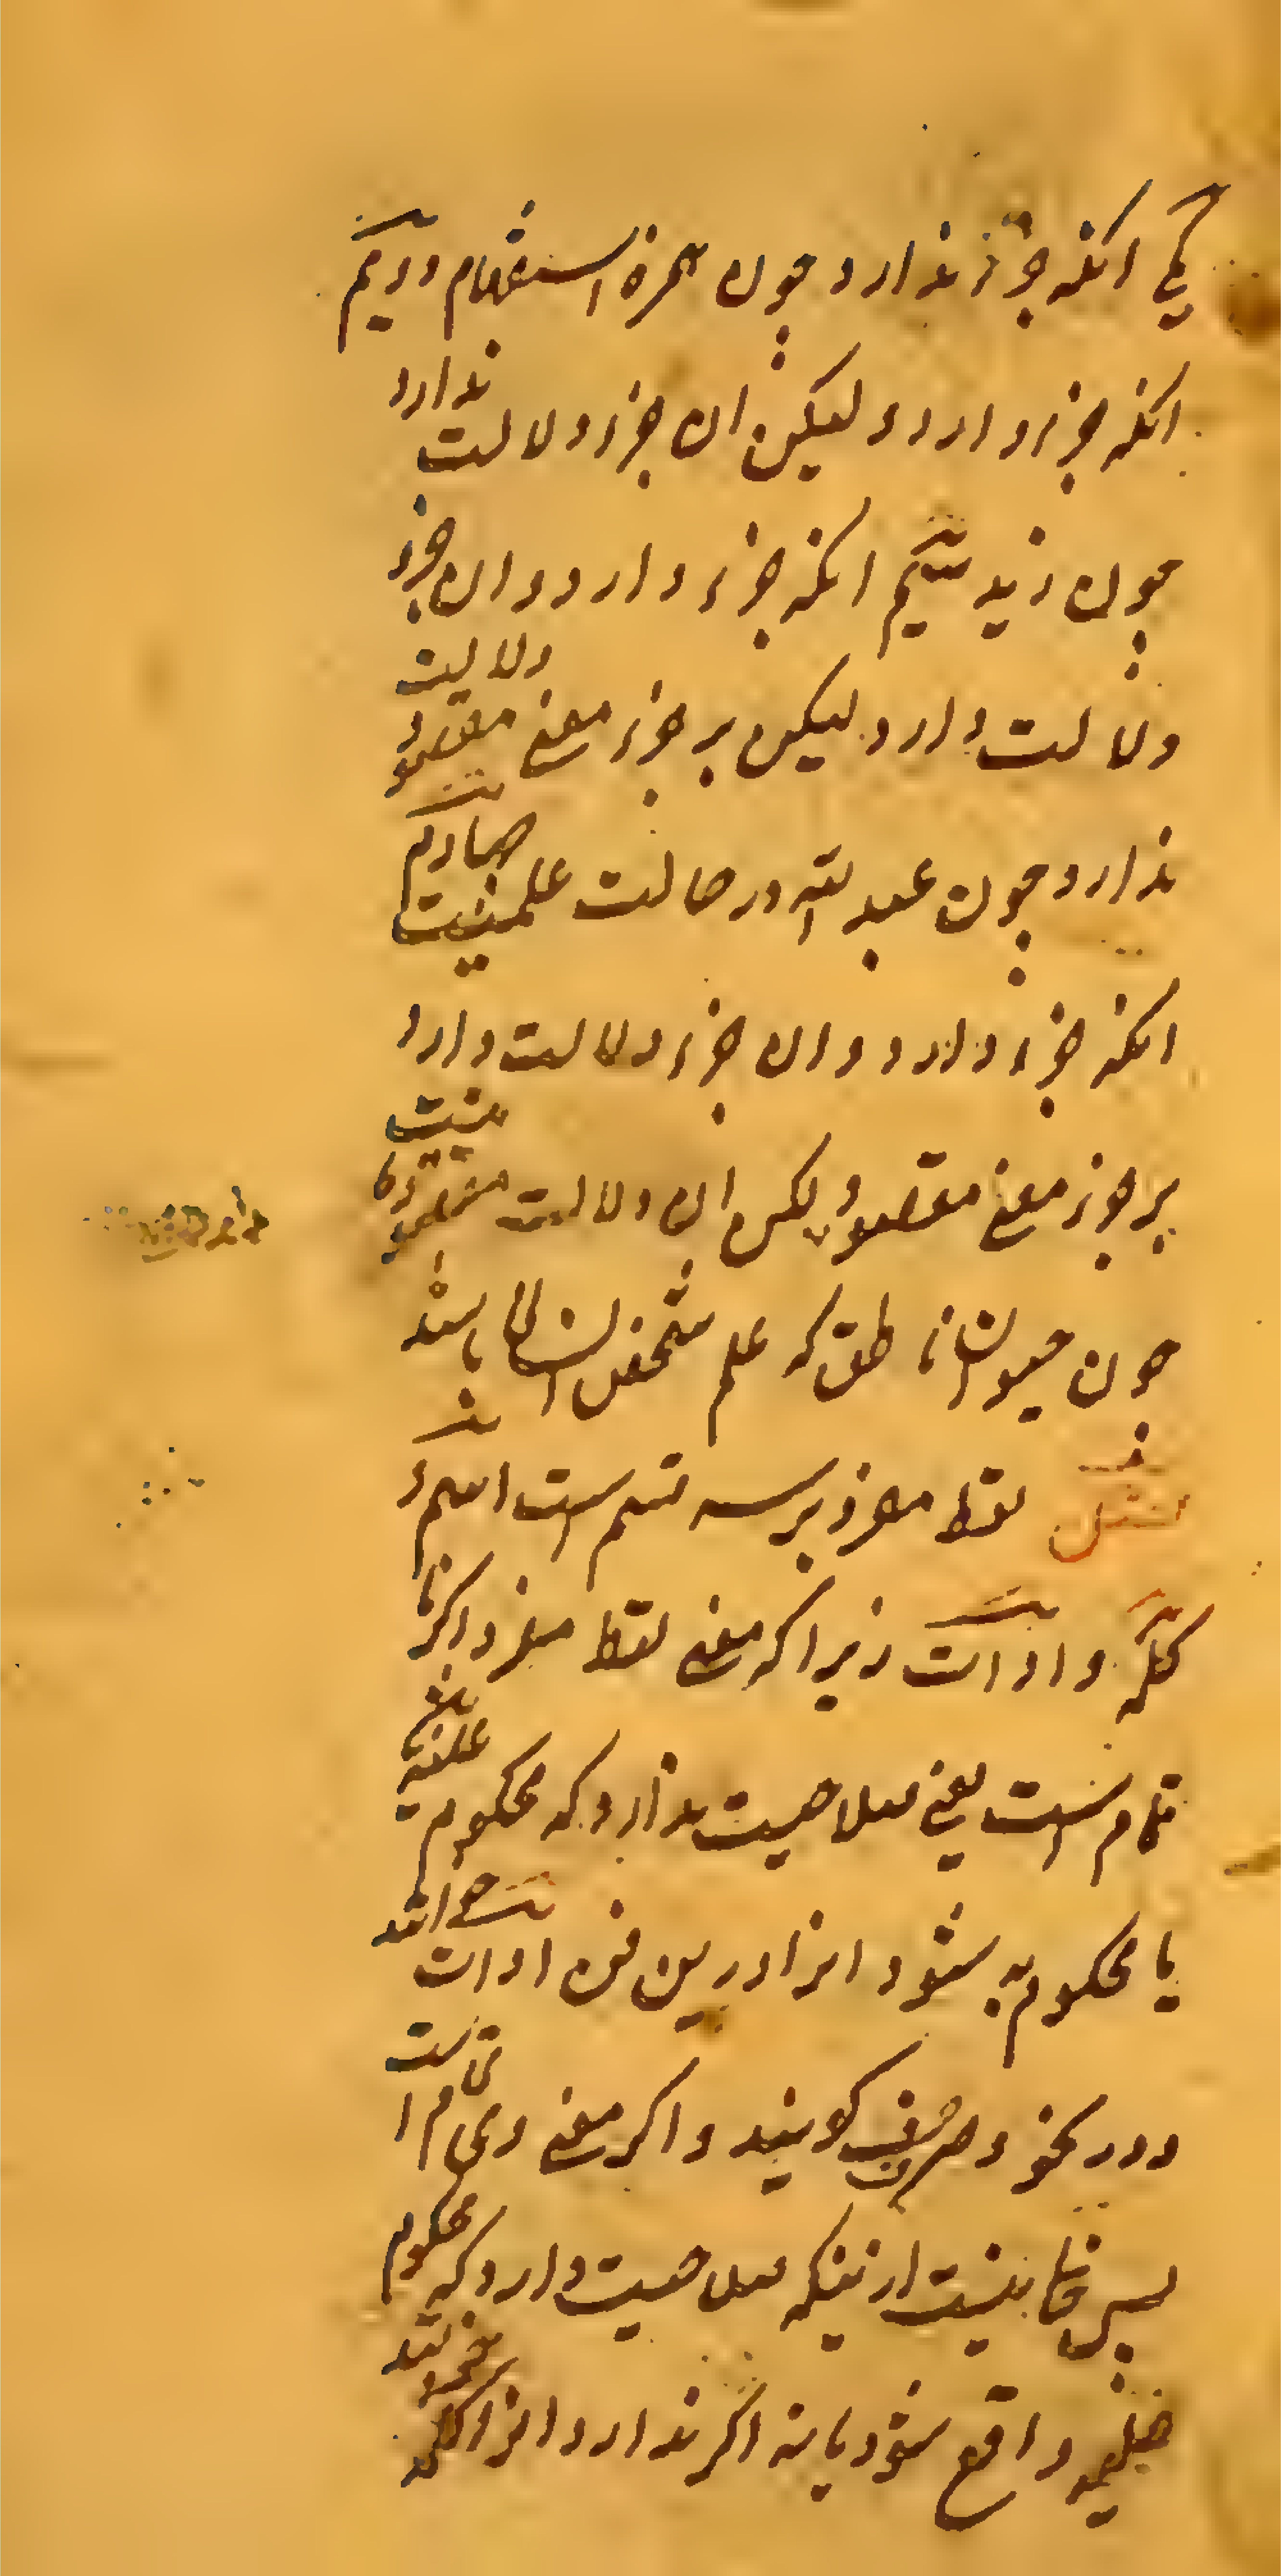 یکی انکه جزء ندارد چون همزه استفهام دویم
انکه جزء دارد و لیکن ان جزء دلالت ندارد
چون زید سیم انکه جزء دارد و ان جزء
دلالت دارد لیکن بر جزء معنی مقصود دلالت
ندارد چون عبد الله در حالت علمیت چهارم
انکه جزء دارد و ان جزء دلالت دارد
بر جزء معنی مقصود لکن ان دلالت مقصود نیست
چون حیوان ناطق که علم شخص انسانی باشد
فصل لفظ مفرد بر سه قسم است اسم و
کلمه و ادات زیرا که معنی لفظ مفرد اکر نا
تمام است یعنی صلاحیت ندارد که محکوم علیه
یا محکوم به شود انرا درین فن ادات خوانند
و در نحو حرف کویند و اکر معنی وی تمام است
پس خالی نیست از نیکه صلاحیت دارد که محکوم
علیه واقع شود یا نه اکر ندارد انرا کلمه خوانند